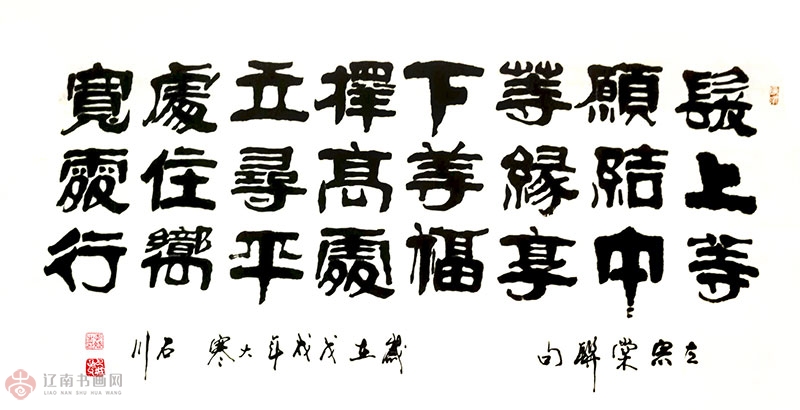 髮上等
願結中
等緣享
下等福
擇高處
立尋平
處住嚮
寬處行
左宗棠聯句
歲在戊戌年大寒 石川
辽南书画网
LIAO NAN SHU HUA WANG